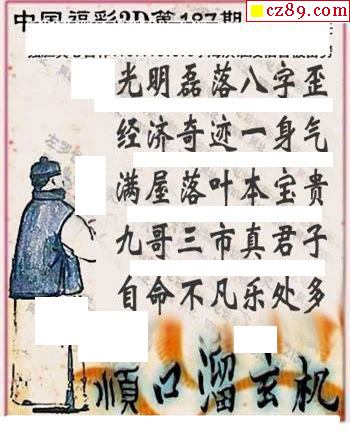 cz89.com
中国福彩3D第187期
光明磊落八字歪
经济奇迹一身气
满屋落叶本宝贵
九哥三市真君子
自命不凡乐处多
顺口溜玄机